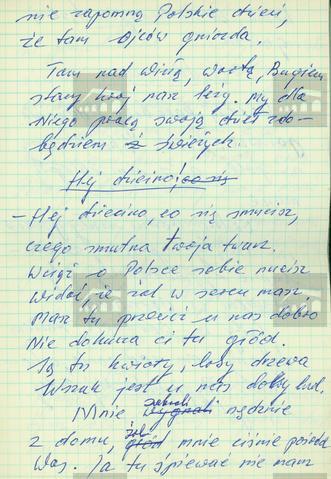 nie zapomną Polskie dzieci,
że tam ojców gniazda.
Tam nad Wisłą, Wartą, Bugiem
stary kraj nasz leży. My dla
Niego pracą swoją dziet zdo-
będziem ż świeżych.
Hej dziecino! co się
- Hej dziecino, co się smucisz,
czego smutna twoja twarz.
Wciąż o Polsce sobie nucisz
widać, że żal w sercu masz
Masz tu przecież u nas dobrze
Nie dokucza ci tu głód.
Są tu kwiaty, lasy drzewa
Wszak jest u nas dobry lud.
Mnie wygnali zabrali nędznie
z domu, głód żal mnie ciśnie pośród
Was. Ja tu śpiewać nie mam